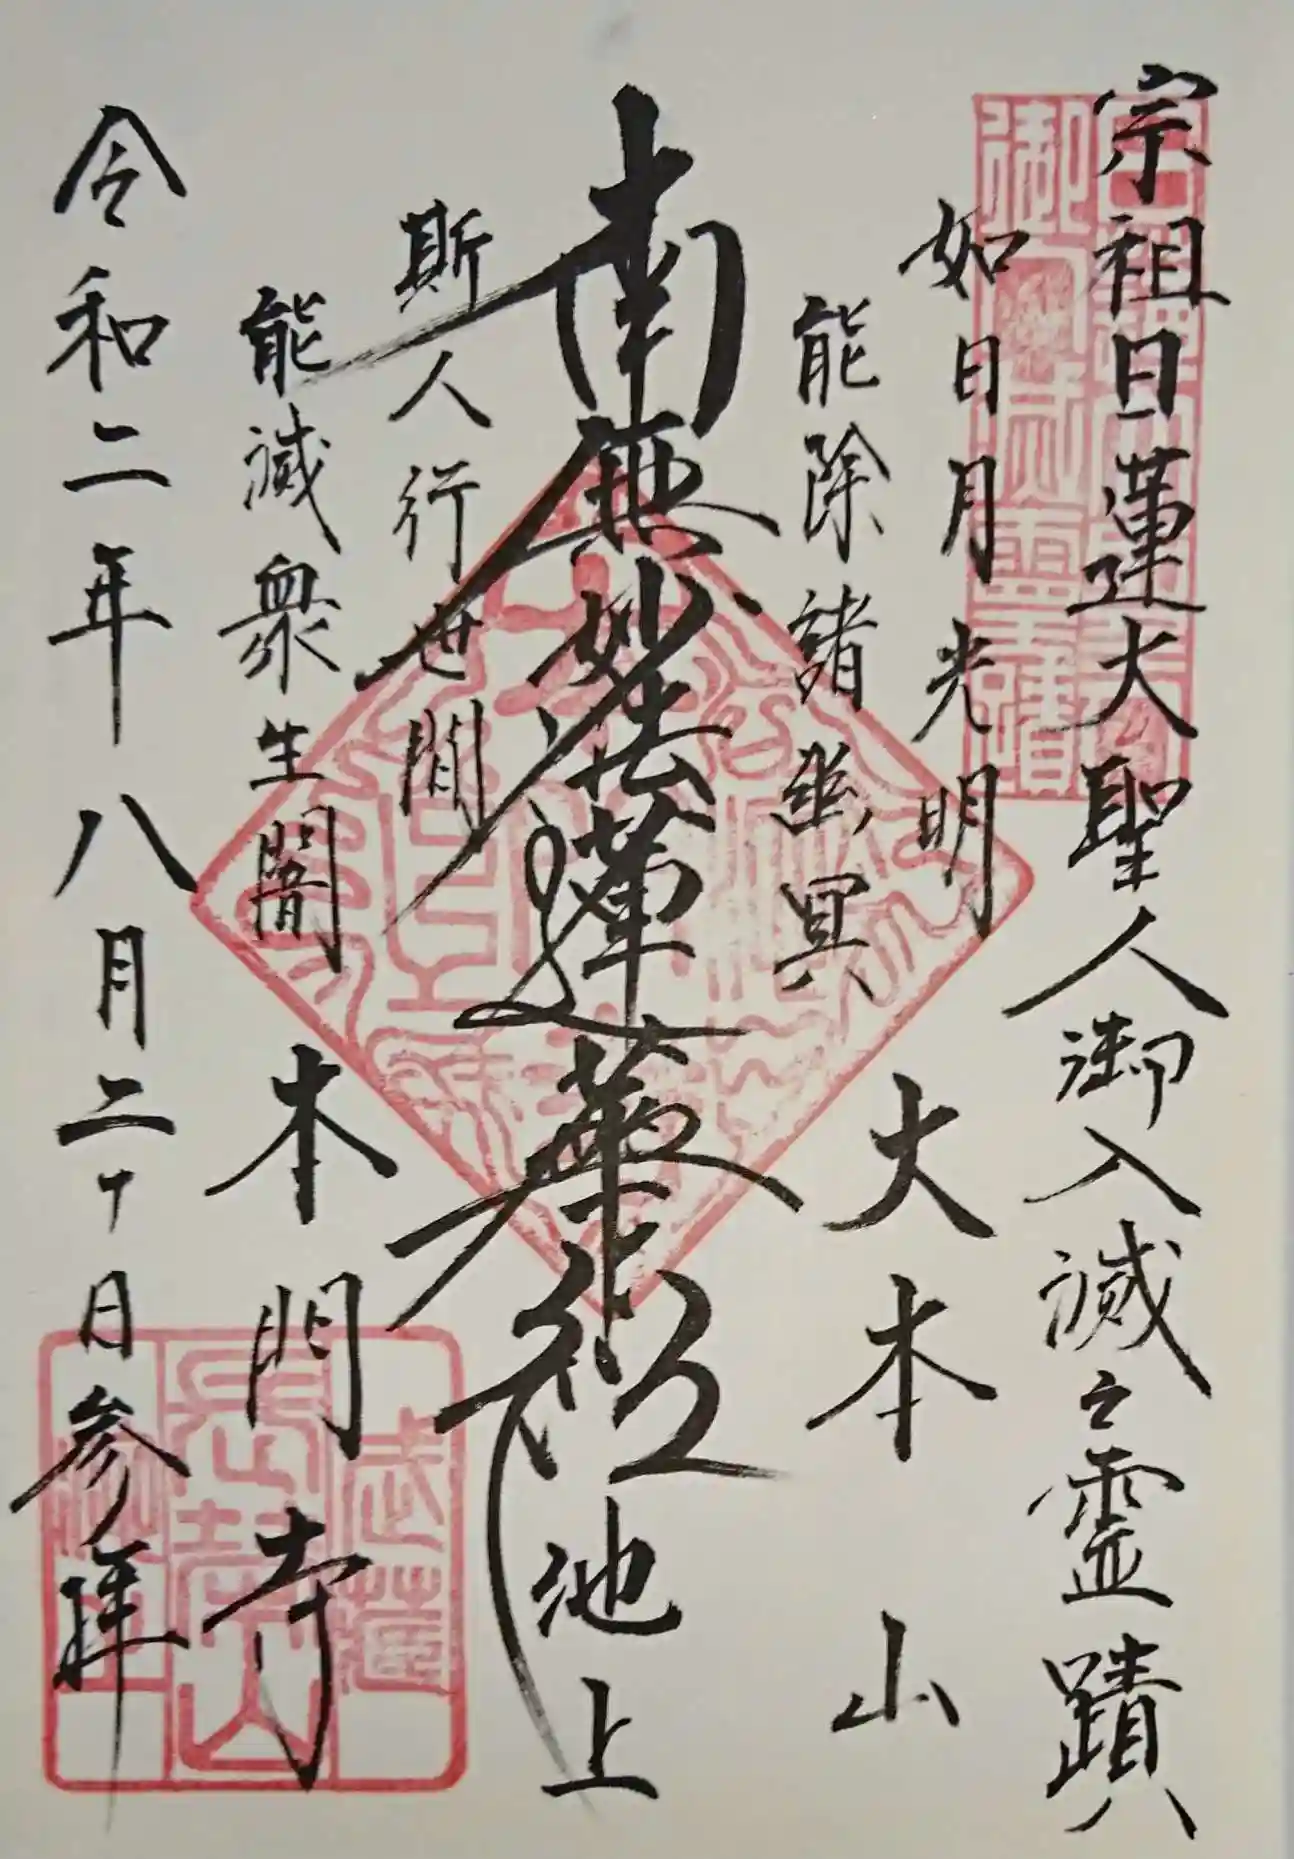 宗祖日蓮大聖人御入滅之霊蹟
如日月光明
能除諸幽冥
大本山
南無妙法蓮華経
池上
斯人行世間
能滅衆生闇
本門寺
令和二年八月二十日参拝
御入滅霊蹟
武蔵
長栄山
池上